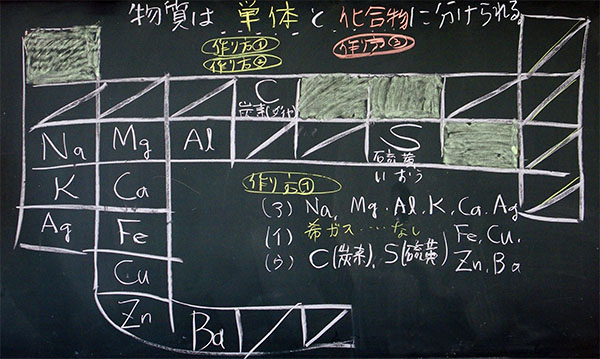 物質は 単体 と 化合物 に分けられる
作り方① 作り方③
作り方②
C
炭素(ダイヤ
Na Mg Al S
硫黄
いおう
K Ca
Ag Fe
Cu
Zn Ba
作り方①
(ア) Na, Mg, Al, K, Ca, Ag
Fe, Cu,
Zn, Ba
(イ) 希ガス……なし
(ウ) C(炭素), S(硫黄)